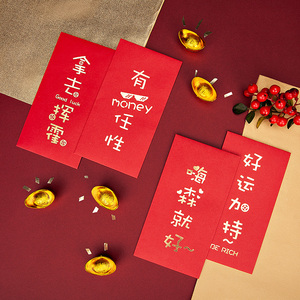 拿去
Good luck
挥霍
有
money
任性
嗨森就好~
好运加持~
RICH